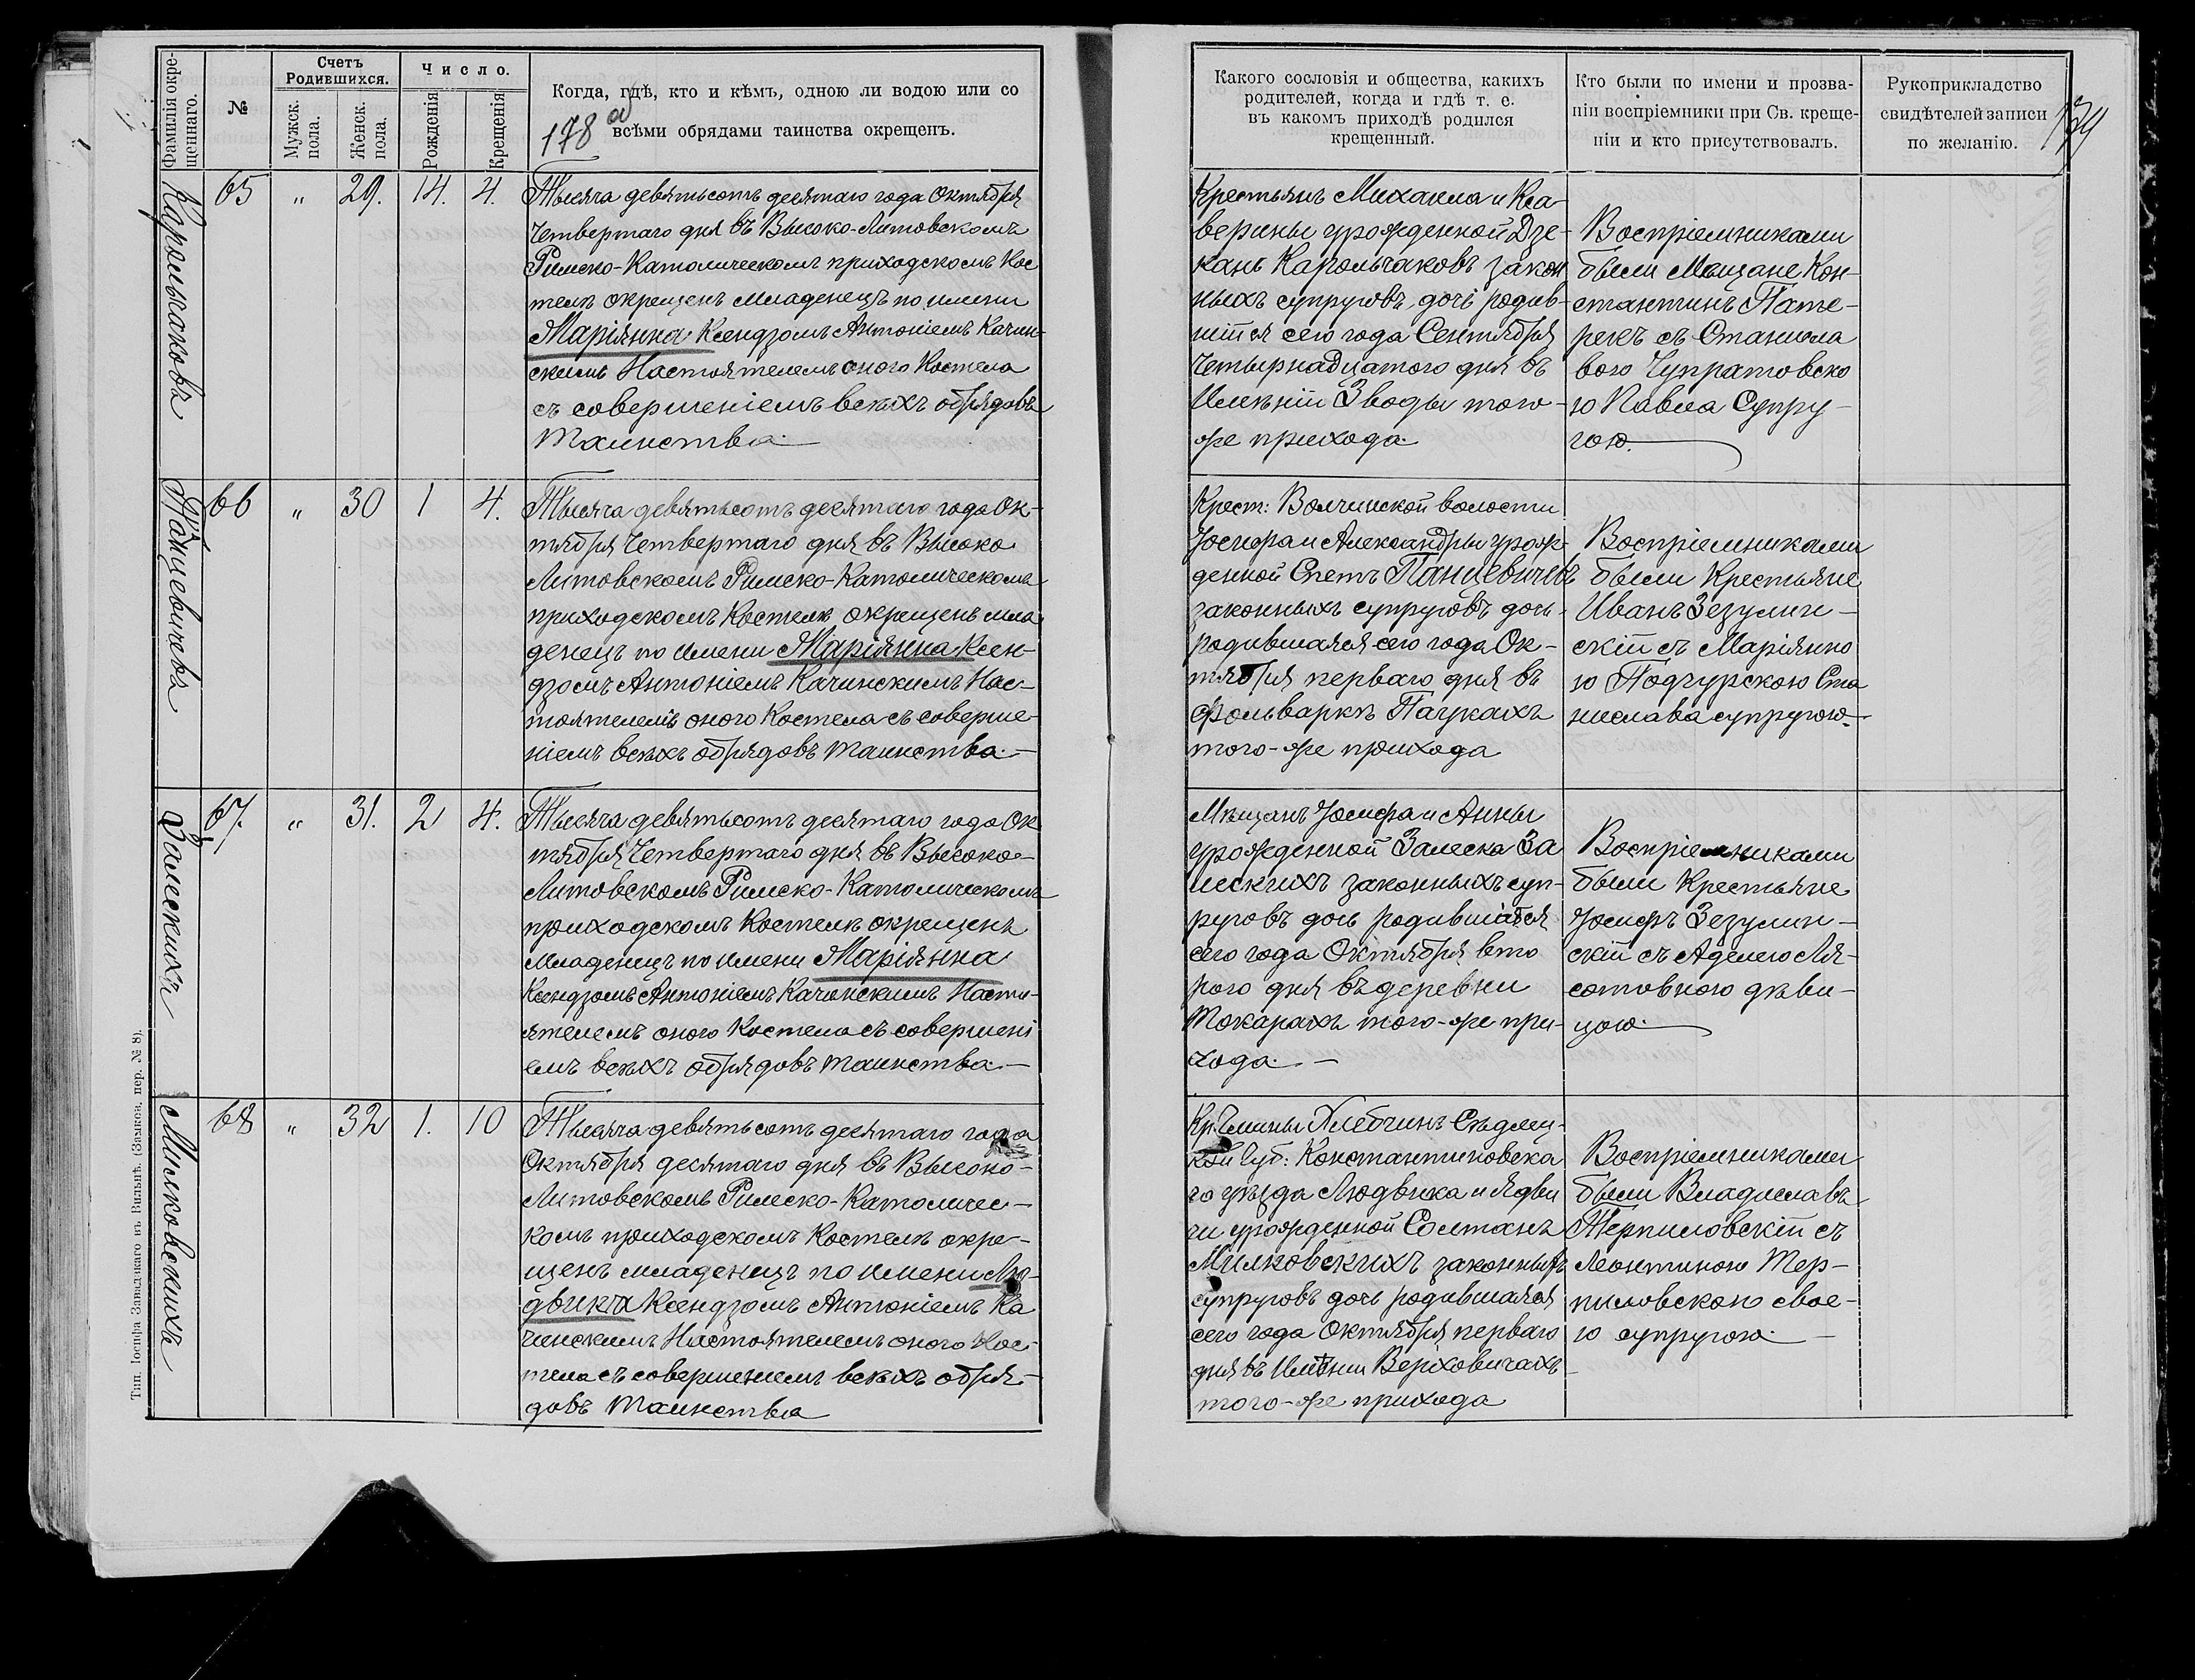 Фамилія окре-
щеннаго.
№
Счетъ
Родившихся.
Мужск.
пола.
Женск.
пола.
Число.
Рожденія
Крещенія
Когда, гдѣ, кто и кѣмъ, одною ли водою или со
всѣми обрядами таинства окрещенъ.
178
Карольчаковъ
65 " 29. 14. 4.
Тысяча девятьсотъ десятаго года Октября
Четвертаго дня въ Высоко-Литовскомъ
Римско-Католическомъ приходскомъ Кос
телѣ окрещенъ младенецъ по имени
Маріянна Ксендзомъ Антоніемъ Качин-
скимъ Настоятелемъ оного Костела
съ совершеніемъ всѣхъ обрядовъ
Таинства.
Панцевичевъ
66 " 30 1 4.
Тысяча девятьсотъ десятаго года Ок-
тября Четвертаго дня въ Высоко
Литовскомъ Римско-Католическомъ
приходскомъ Костелѣ окрещенъ мла
денецъ по имени Маріянна Ксен-
дзомъ Антоніемъ Качинскимъ Нас-
тоятелемъ оного Костела съ соверше-
ніемъ всѣхъ обрядовъ таинства.—
Залескихъ
67. " 31. 2 4.
Тысяча девятьсотъ десятаго года Ок
тября Четвертаго дня въ Высоко-
Литовскомъ Римско-Католическомъ
приходскомъ Костелѣ окрещенъ
Младенецъ по имени Маріянна
Ксендзомъ Антоніемъ Качинскимъ Насто-
ятелемъ оного Костела съ совершені
емъ всѣхъ обрядовъ таинства.—
Милковскихъ
68 " 32 1. 10
Тысяча девятьсотъ десятаго года
Октября десятаго дня въ Высоко-
Литовскомъ Римско-Католичес-
комъ приходскомъ Костелѣ окре-
щенъ младенецъ по имени Лю-
двика Ксендзомъ Антоніемъ Ка
чинскимъ Настоятелемъ оного Кос-
тела съ совершеніемъ всѣхъ обря-
довъ Таинства
Тип. Іосифа Завадзкаго въ Вильнѣ. (Замков. пер. № 8).
Какого сословія и общества, какихъ
родителей, когда и гдѣ т. е.
въ какомъ приходѣ родился
крещенный.
Кто были по имени и прозва-
ніи воспріемники при Св. креще-
ніи и кто присутствовалъ.
Рукоприкладство
свидѣтелей записи
по желанію.
Крестьянъ Михаила и Кса-
верины урожденной Дзе-
канъ Карольчаковъ закон
ныхъ супруговъ дочь родив-
шійся сего года Сентября
Четырнадцатого дня въ
Имѣніи Зводы того-
же прихода.
Воспріемниками
были Мещане Кон-
стантинъ Пате-
рекъ съ Станисла
вого Чупратовско
ю Павла Супру-
гою.
Крест: Волчинской волости
Іосифа и Александры урож-
денной Спетъ Панцевичевъ
законныхъ супруговъ дочь
родившаяся сего года Ок-
тября перваго дня въ
Фольваркѣ Пацукахъ
того-же прихода
Воспріемниками
были Крестьяне
Иванъ Зезулин-
скій съ Маріянно
ю Подгурскою Ста
нислава супругою.
Мѣщанъ Іосифа и Анны
урожденной Залеска За
лескихъ законныхъ суп-
руговъ дочь родившаяся
сего года Октября вто
рого дня въ деревни
Токарахъ того-же при-
хода.—
Воспріемниками
были Крестьяне
Іосифъ Зезулин-
скій съ Аделею Ля-
сотовною дѣви-
цою.
Кр. Гмины Хлебчинъ Сѣдлец-
кой Губ: Константиновска
го уѣзда Людвика и Ядви
ги урожденной Солтанъ
Милковскихъ законныхъ
супруговъ дочь родившаяся
сего года Октября перваго
дня въ Имѣніи Верховичахъ
того-же прихода
Воспріемниками
были Владиславъ
Терпиловскій съ
Леонтиною Тер-
пиловскою свое-
ю супругою.—